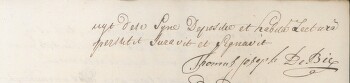 Syne Depositie et habita Lectura
persistit Juravit et Signavit
Thomas Joseph De Bie